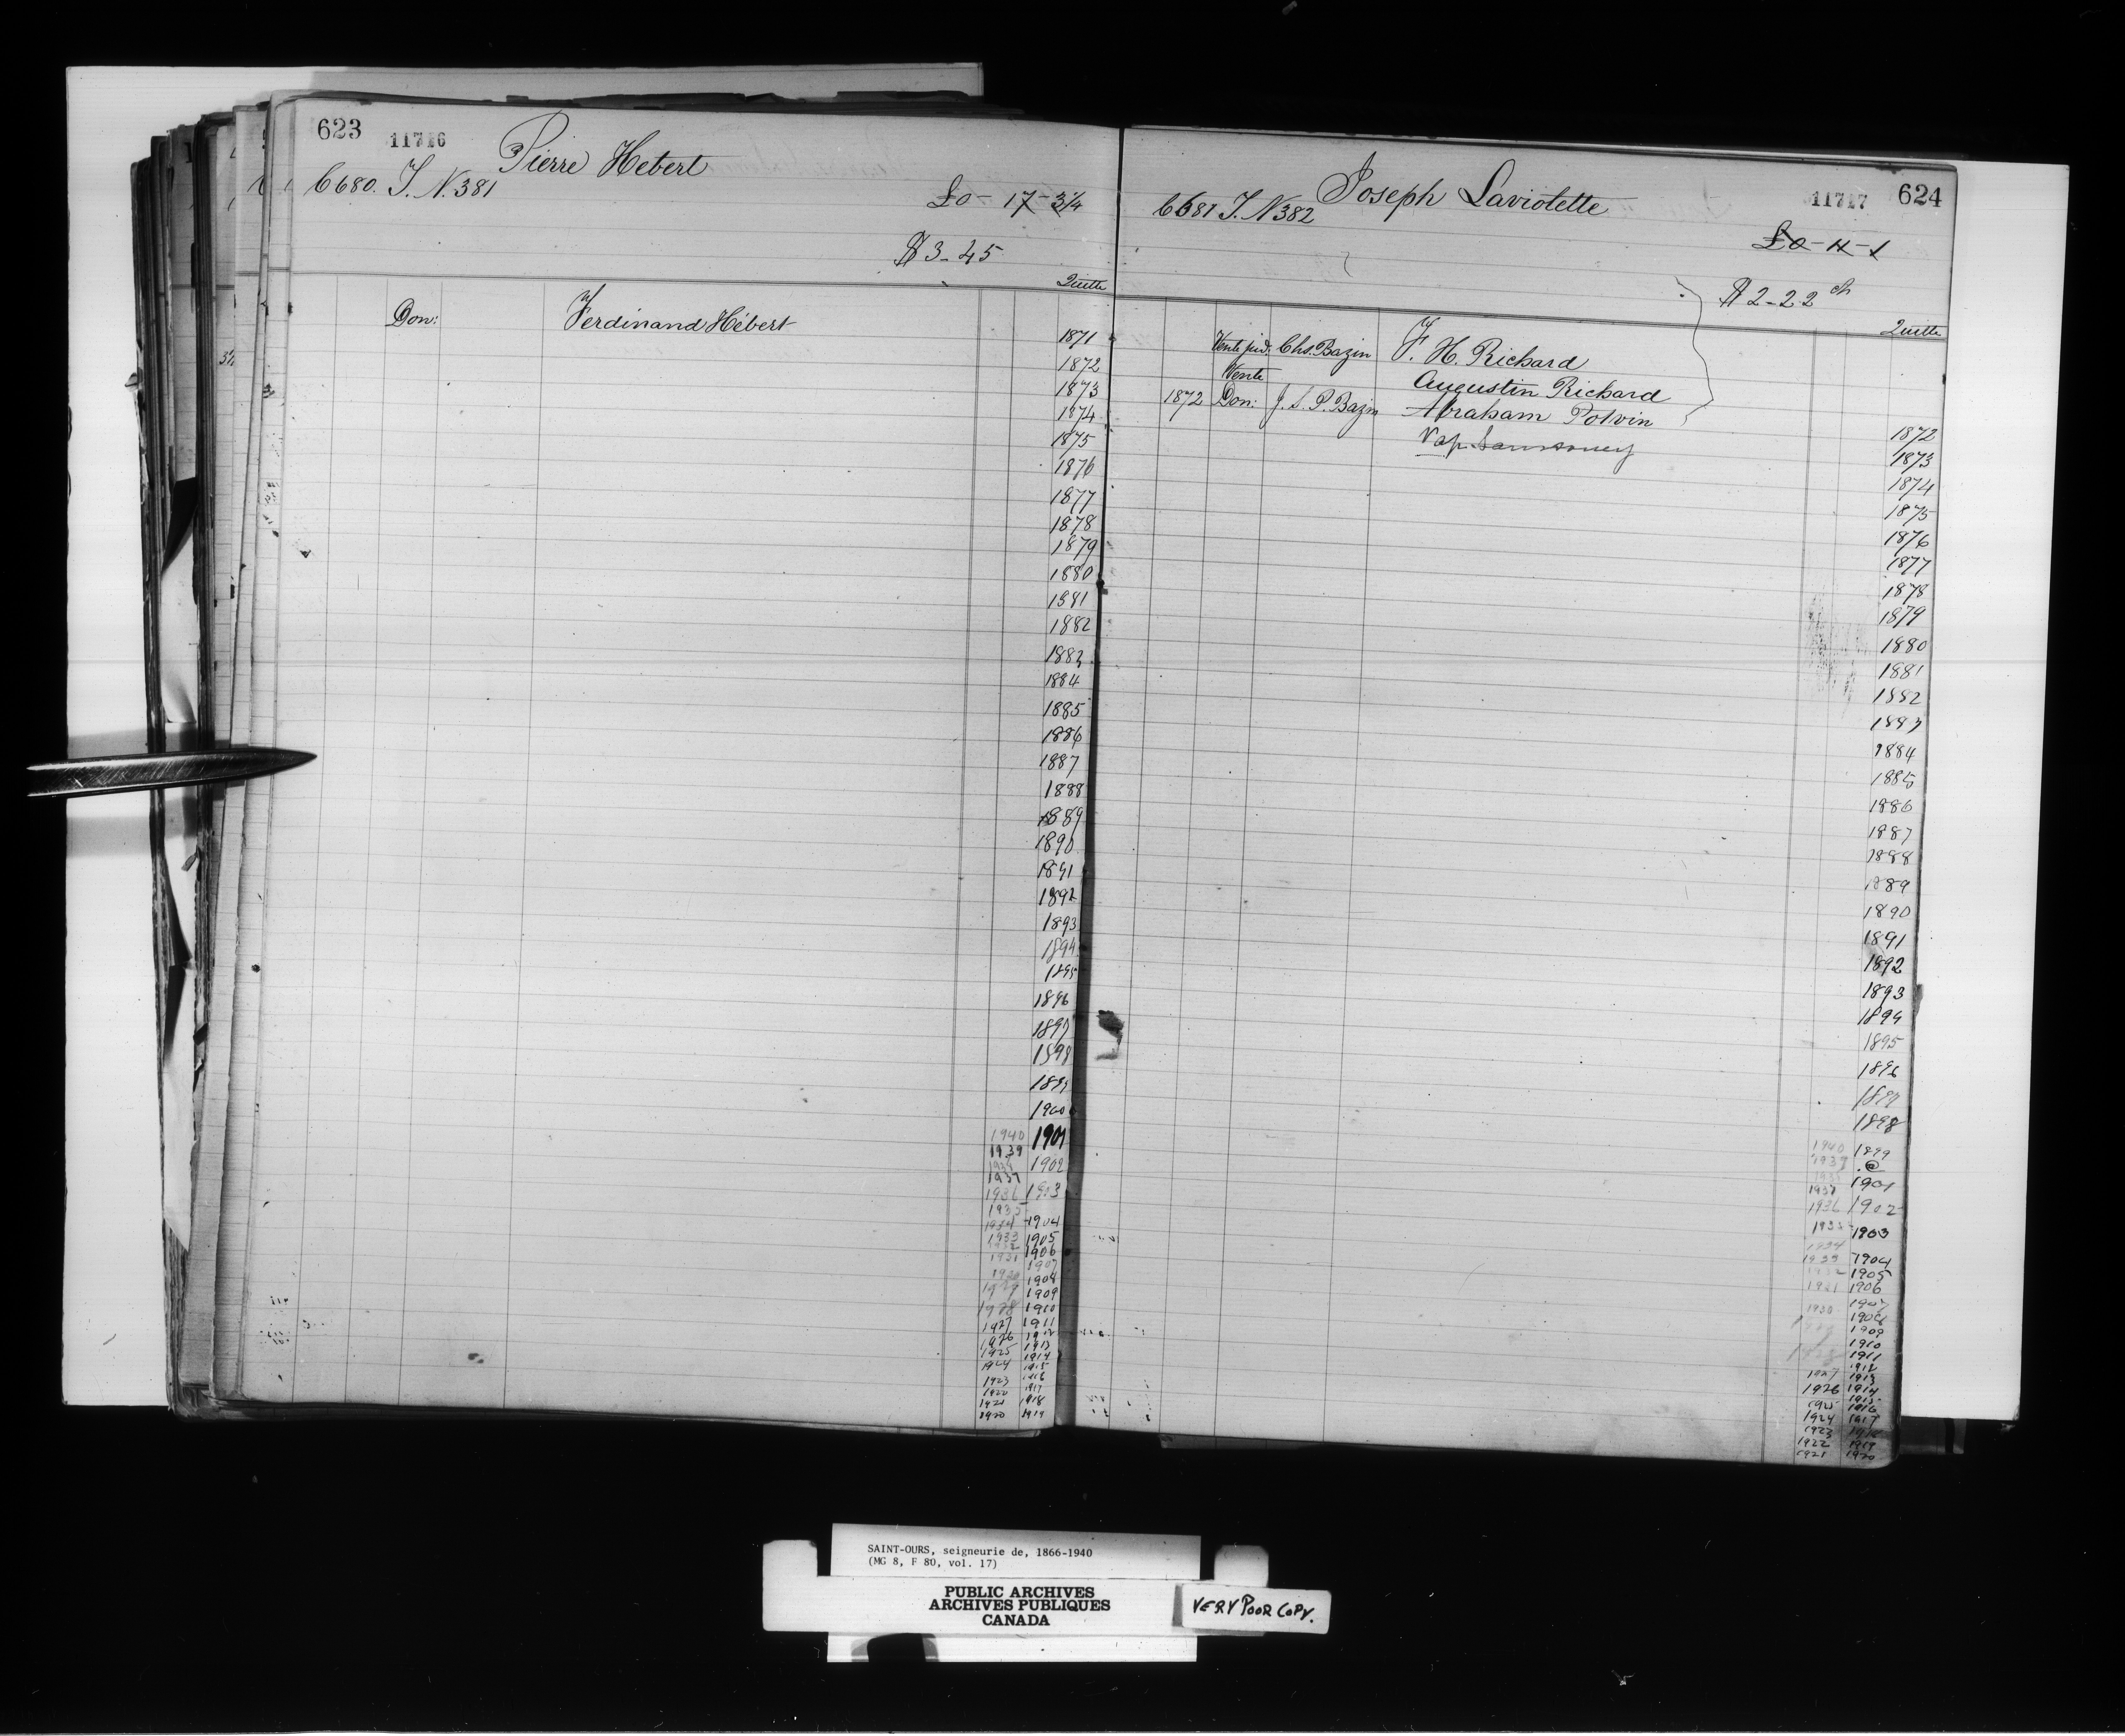 623 11716
Pierre Hebert
6680. T. N. 381
£0- 17- 3¼
$3-45
Quitte
Don: Ferdinand Hébert
1871
1872
1873
1874
1875
1876
1877
1878
1879
1880
1881
1882
1883
1884
1885
1886
1887
1888
1889
1890
1891
1892
1893
1894
1895
1896
1897
1898
1899
1900
1940 1901
1939
1902
1937
1936 1903
1935
1934 1904
1933 1905
1932 1906
1931 1907
1930 1908
1929 1909
1928 1910
1927 1911
1926 1912
1925 1913
1914
1924 1915
1923 1916
1917
1921 1918
1920 1919
11717 624
Joseph Laviolette
6681 T. N 382
£0-11-1
$2-22
Quitte
Vente jud. Chs. Bazin F. H. Richard
Vente Augustin Richard
1872 Don: J. S. P. Bazin Abraham Potvin
1872
1873
1874
1875
1876
1877
1878
1879
1880
1881
1882
1883
1884
1885
1886
1887
1888
1889
1890
1891
1892
1893
1894
1895
1896
1897
1898
1940 1899
1939
1937 1901
1936 1902
1935 1903
1934
1933 1904
1932 1905
1931 1906
1930 1907
1908
1909
1910
1911
1912
1927 1913
1926 1914
1915
1925 1916
1924 1917
1923 1918
1922 1919
1921 1920
SAINT-OURS, seigneurie de, 1866-1940
(MG 8, F 80, vol. 17)
PUBLIC ARCHIVES
ARCHIVES PUBLIQUES
CANADA
VERY POOR COPY.